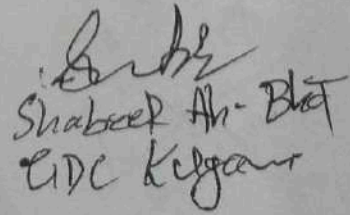 Shabeer Ah- Bhat
GDC Kulgam